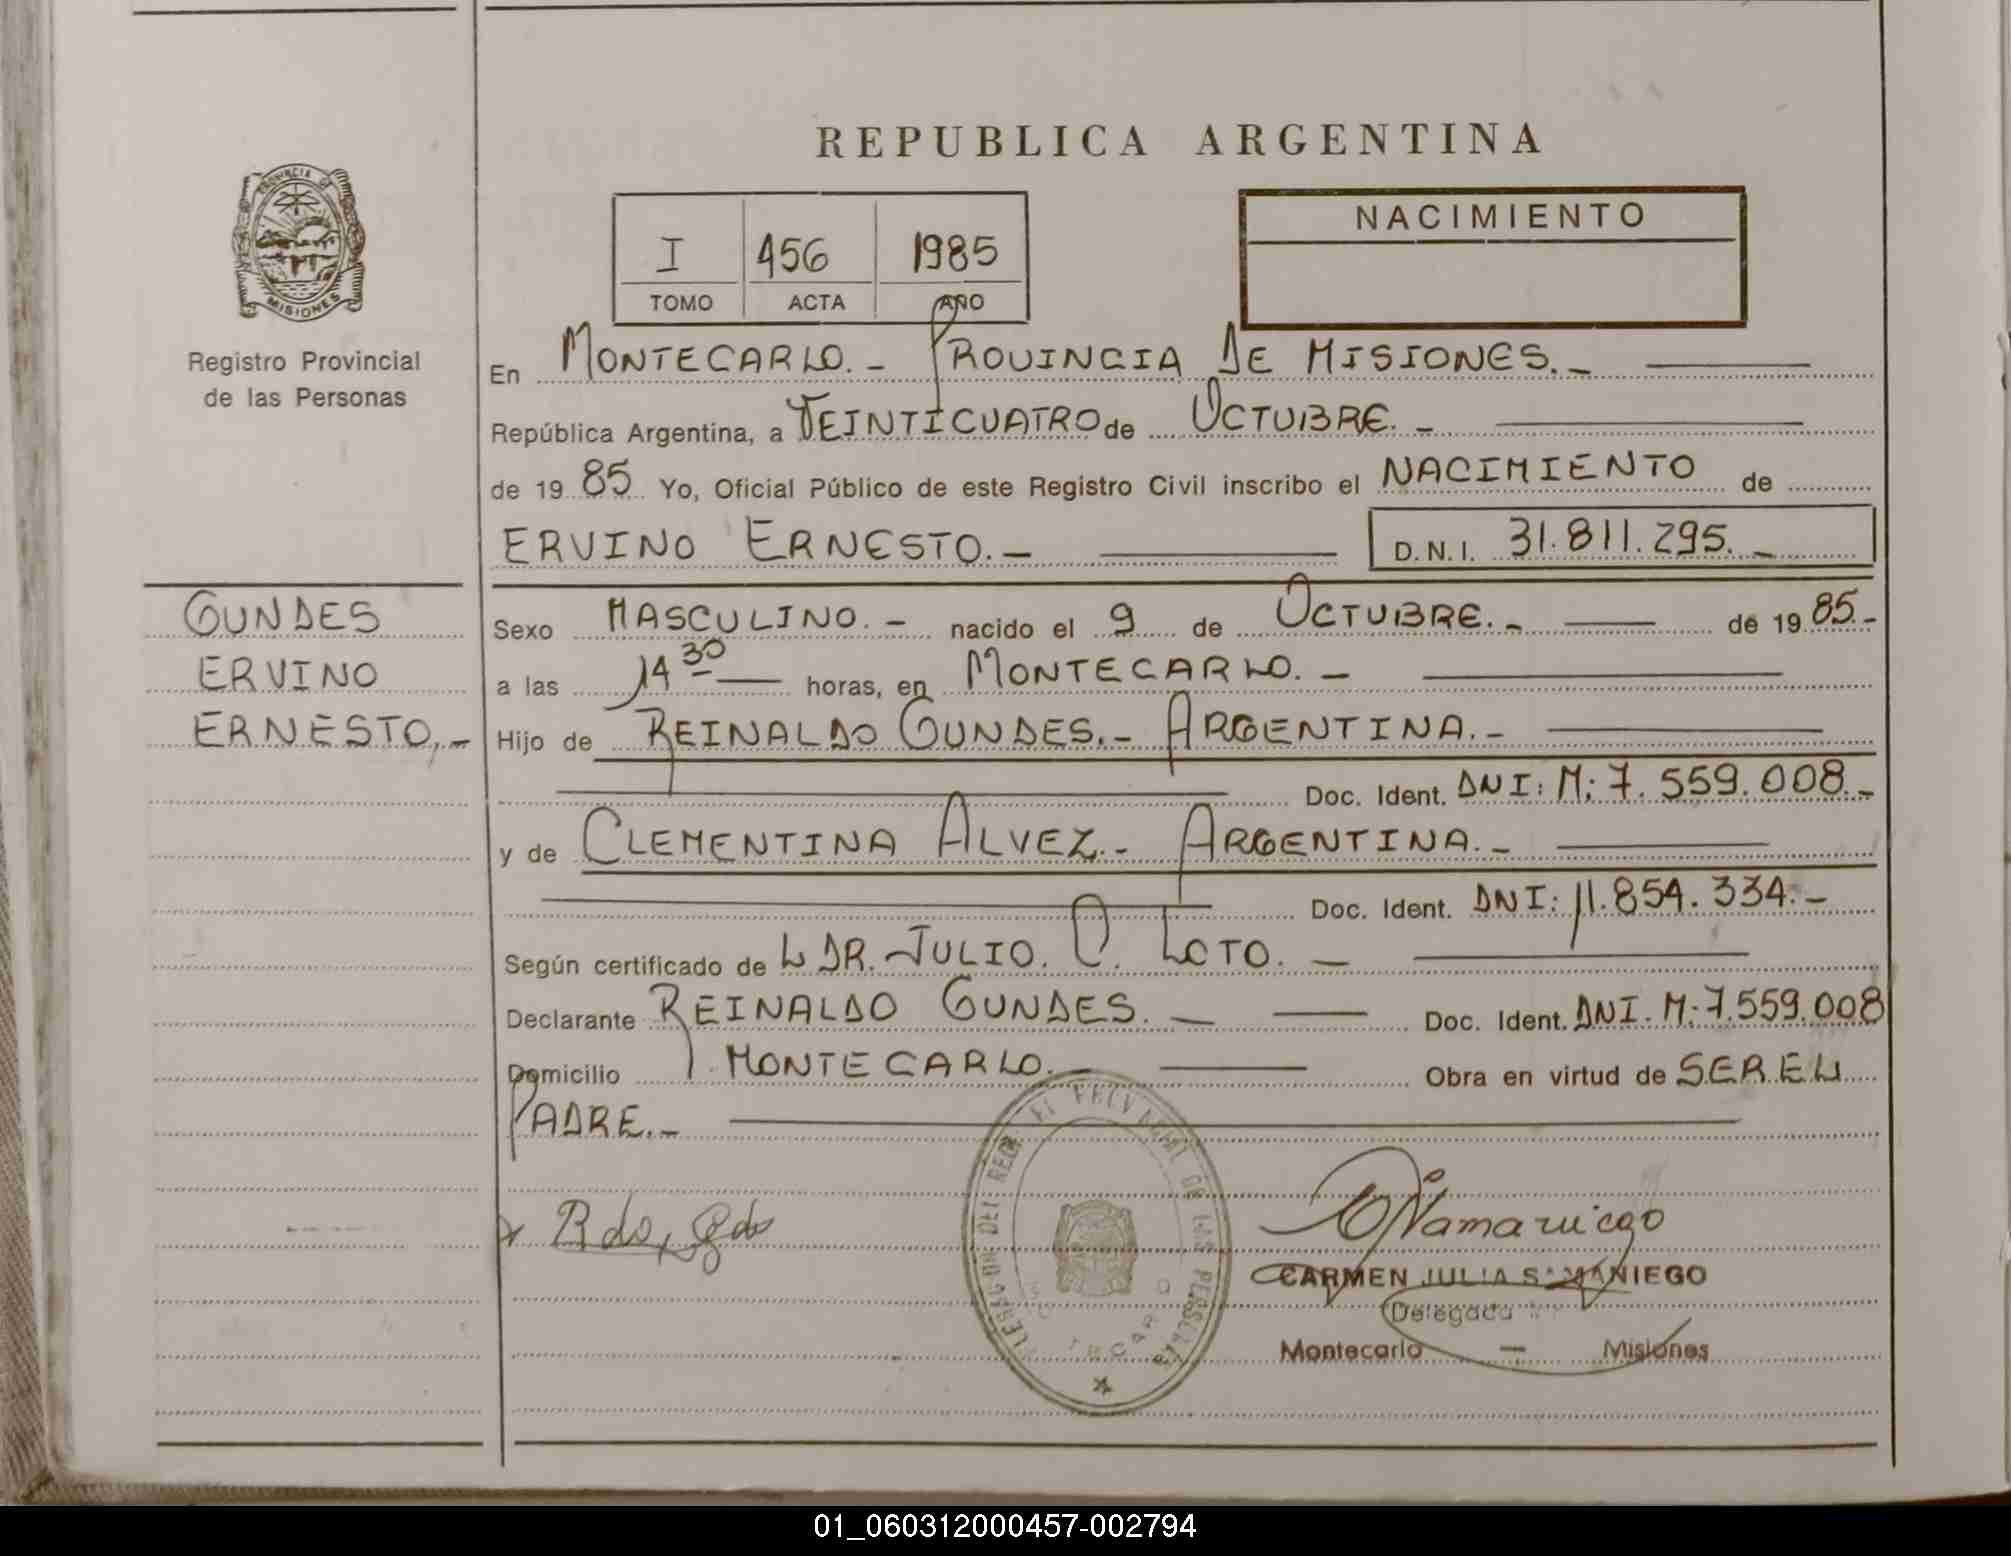 REPUBLICA ARGENTINA
PROVINCIA DE
MISIONES
Registro Provincial
de las Personas
I 456 1985
TOMO ACTA AÑO
NACIMIENTO
En MONTECARLO.- PROVINCIA DE MISIONES.-
República Argentina, a VEINTICUATRO de OCTUBRE.-
de 1985 Yo, Oficial Público de este Registro Civil inscribo el NACIMIENTO de
ERVINO ERNESTO.- D.N.I. 31.811.295.-
GUNDES
ERVINO
ERNESTO,-
Sexo MASCULINO.- nacido el 9 de OCTUBRE.- de 1985.-
a las 14 30 horas, en MONTECARLO.-
Hijo de REINALDO GUNDES.- ARGENTINA.-
Doc. Ident. DNI: M: 7.559.008.-
y de CLEMENTINA ALVEZ.- ARGENTINA.-
Doc. Ident. DNI: 11.854.334.-
Según certificado de L DR. JULIO. C. LOTO.-
Declarante REINALDO GUNDES.- Doc. Ident. DNI. M:7.559.008
Domicilio MONTECARLO.- Obra en virtud de SER EL
PADRE.-
CARMEN JULIA SAMANIEGO
Delegada
Montecarlo - Misiones
01_060312000457-002794